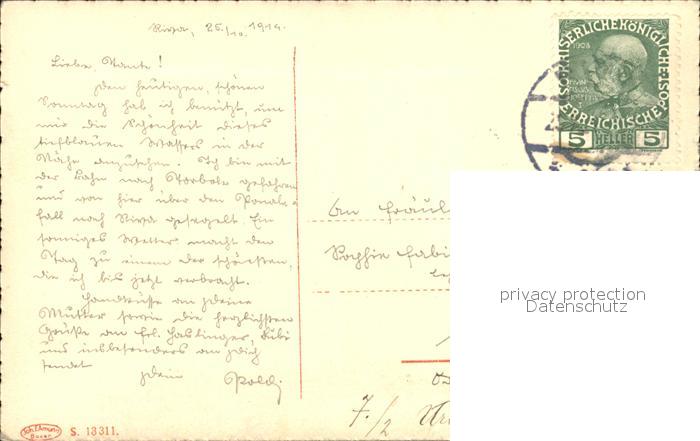 Riva, 25./10. 1914.
Liebe Tante!
Den heutigen, schönen
Sonntag hab ich benützt, um
mir die Schönheit dieses
tiefblauen Wassers in der
Nähe anzusehen. Ich bin mit
der Bahn nach Torbole gefahren
und von hier über den Ponale-
fall nach Riva gesegelt. Ein
sonniges Wetter macht den
Tag zu einem der schönsten,
die ich bis jetzt verbracht.
Handküsse an Deine
Mutter sowie die herzlichsten
Grüße an Frl. Haslinger, Bubi
und insbesonders an Dich
sendet
Dein Poldi
KAISERLICHE KÖNIGLICHE
ÖSTERREICHISCHE POST
1908
5 HELLER 5
An Fräul
Sophie Fabi
7./2
privacy protection
Datenschutz
Joh. F. Amonn
Bozen
S. 13311.